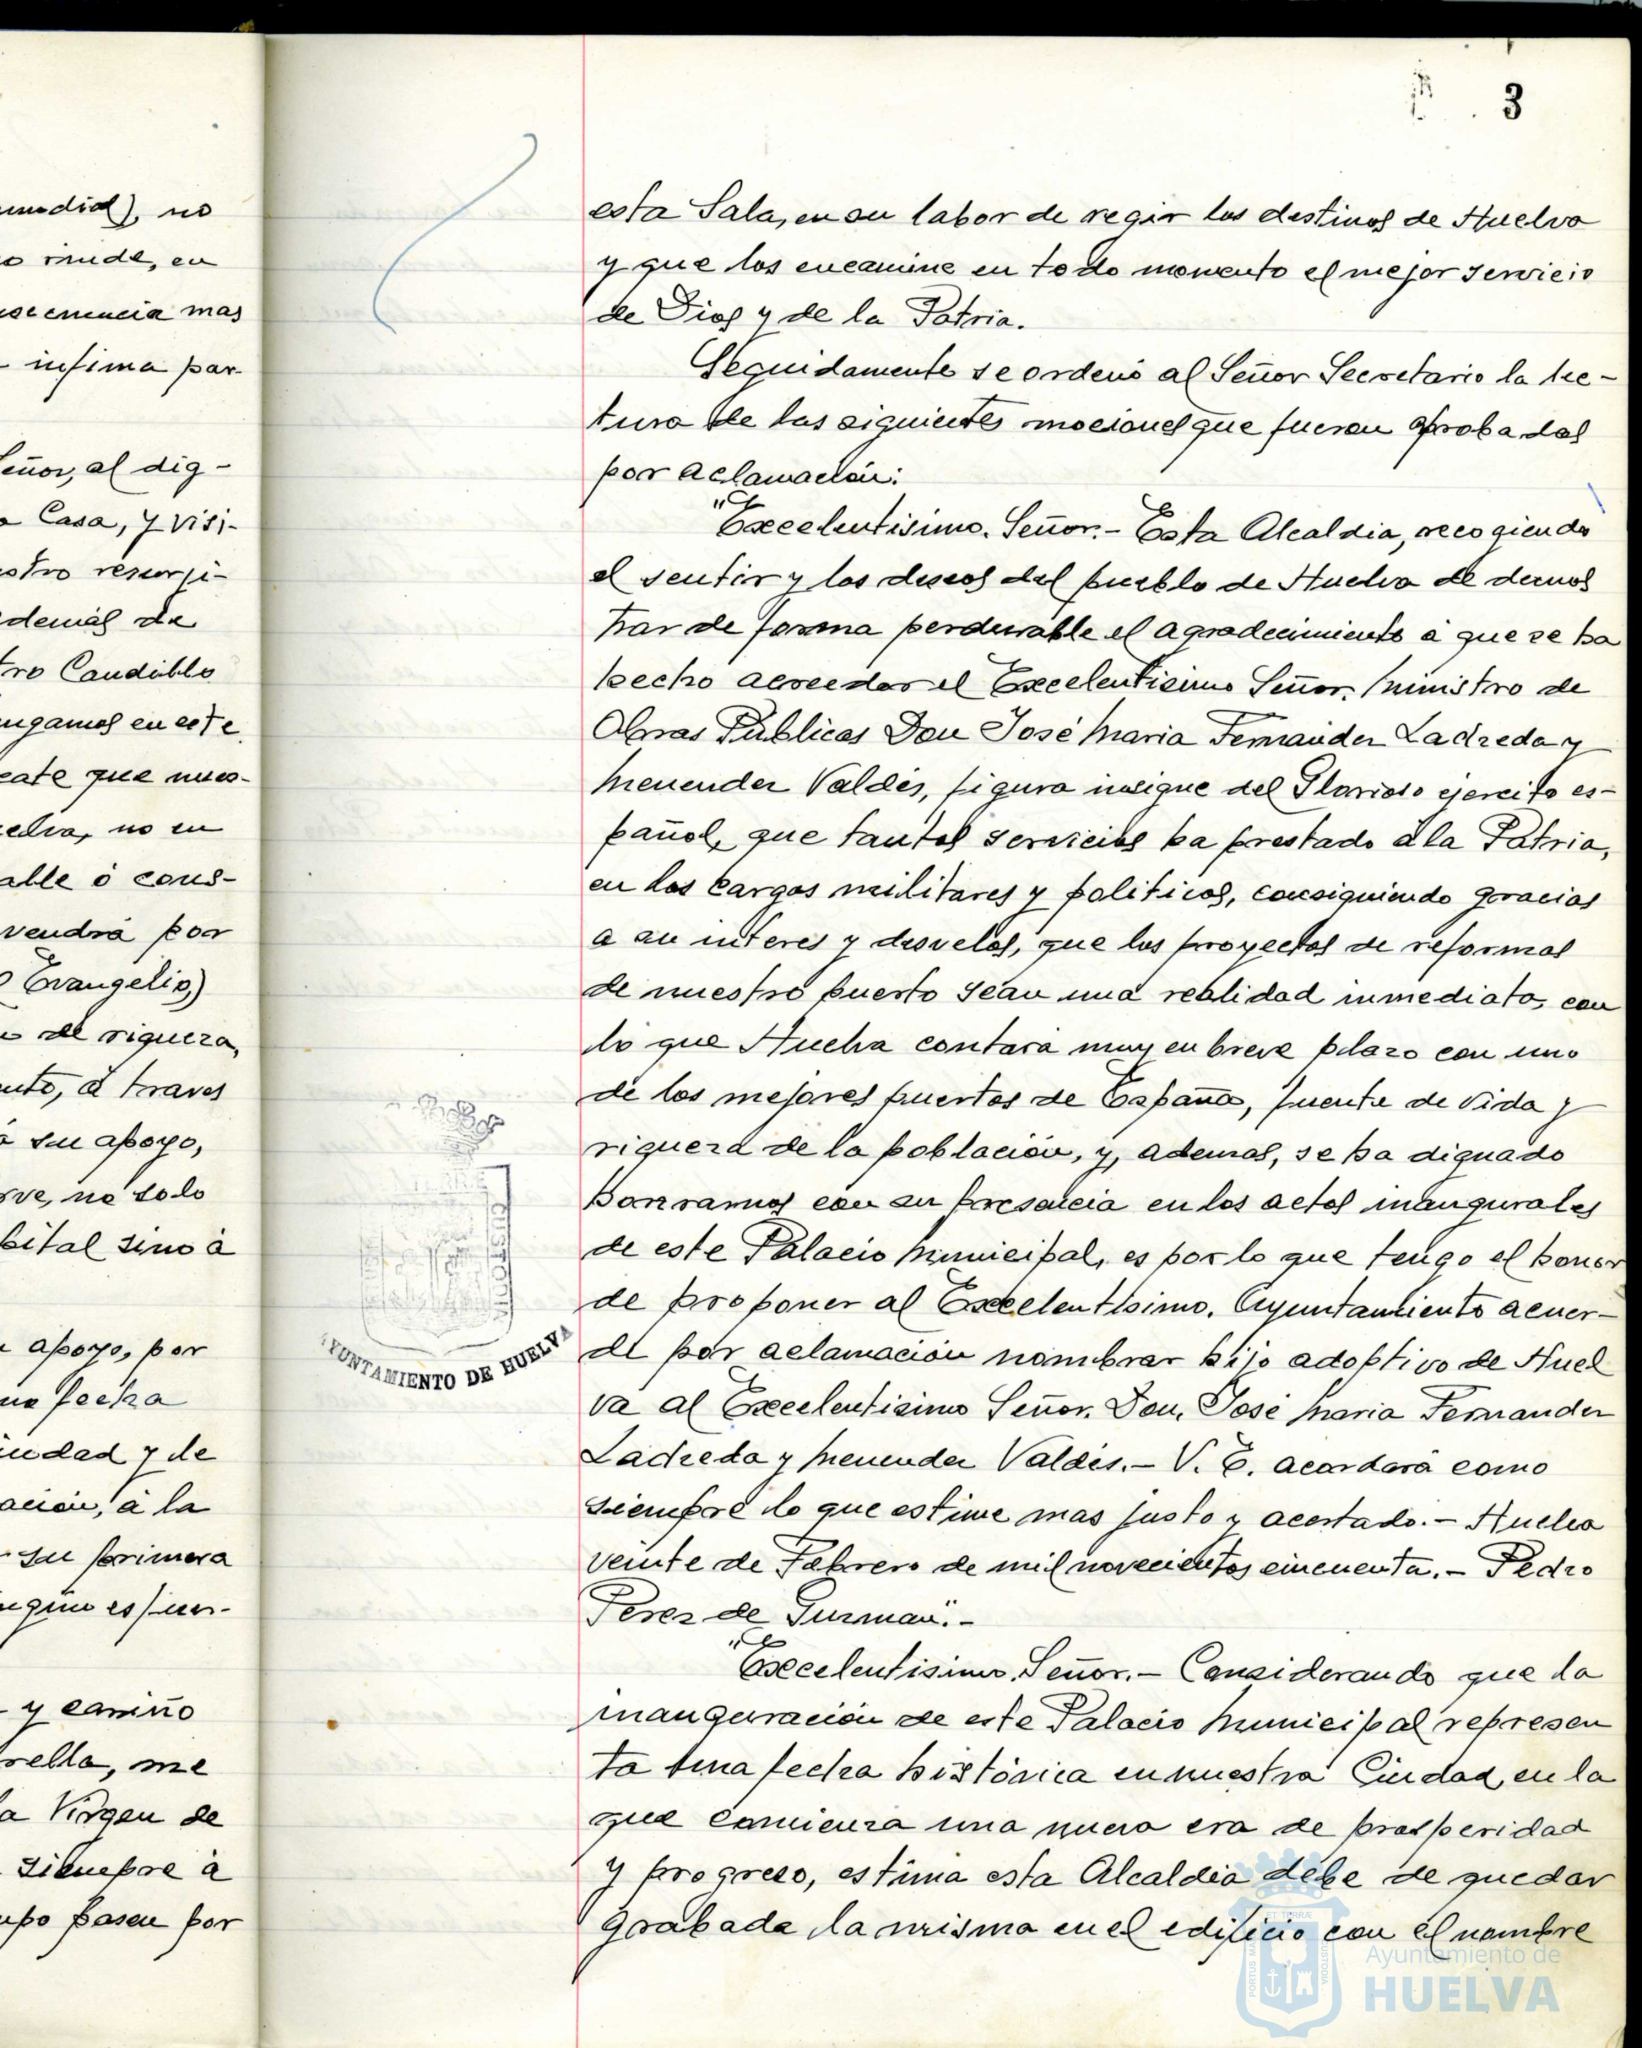 umdial), no
o rinde, en
mas
infima par-
eñor, al dig-
a Casa, y visi-
stro resurji-
demás de
tro Caudillo
ngamos en este
eate que nues-
elva, no en
able ó cons-
vendrá por
Evangelio)
de riqueza,
nto, á traves
á su apoyo,
rve, no solo
pital sino á
apoyo, por
na fecha
iudad y de
ación, á la
su primera
y cariño
rella, me
a Virgen de
siempre á
upo pasen por
3
esta Sala, en su labor de regir los destinos de Huelva
y que los encamine en todo momento el mejor servicio
de Dios y de la Patria.
Seguidamente se ordenó al Señor Secretario la lec-
tura de las siguientes mociones que fueron aprobadas
por aclamación:
"Excelentisimo. Señor.- Esta Alcaldia, recogiendo
el sentir y los deseos del pueblo de Huelva de demos
trar de forma perdurable el agradecimiento á que se ha
hecho acreedor el Excelentisimo Señor. Ministro de
Obras Públicas Don José Maria Fernandez Ladreda y
Menendez Valdés, figura insigne del Glorioso ejercito es-
pañol, que tantos servicios ha prestado á la Patria,
en los cargos militares y politicos, consiguiendo gracias
a su interes y desvelos, que los proyectos de reformas
de nuestro puerto sean una realidad inmediata, con
lo que Huelva contará muy en breve plazo con uno
de los mejores puertos de España, fuente de vida y
riqueza de la población, y, ademas, se ha dignado
honrarnos con su presencia en los actos inaugurales
de este Palacio Municipal, es por lo que tengo el honor
de proponer al Excelentísimo. Ayuntamiento acuer-
de por aclamación nombrar hijo adoptivo de Huel
va al Excelentisimo Señor. Don, José Maria Fernandez
Ladreda y Menendez Valdés.- V. E. acordará como
siempre lo que estime mas justo y acertado.- Huelva
veinte de Febrero de mil novecientos cincuenta.- Pedro
Perez de Guzman".-
"Excelentisimo. Señor.- Considerando que la
inauguración de este Palacio Municipal represen
ta una fecha histórica en nuestra Ciudad, en la
que comienza una nueva era de prosperidad
y progreso, estima esta Alcaldia debe de quedar
grabada la misma en el edificio con el nombre
AYUNTAMIENTO DE HUELVA
Ayuntamiento de
HUELVA